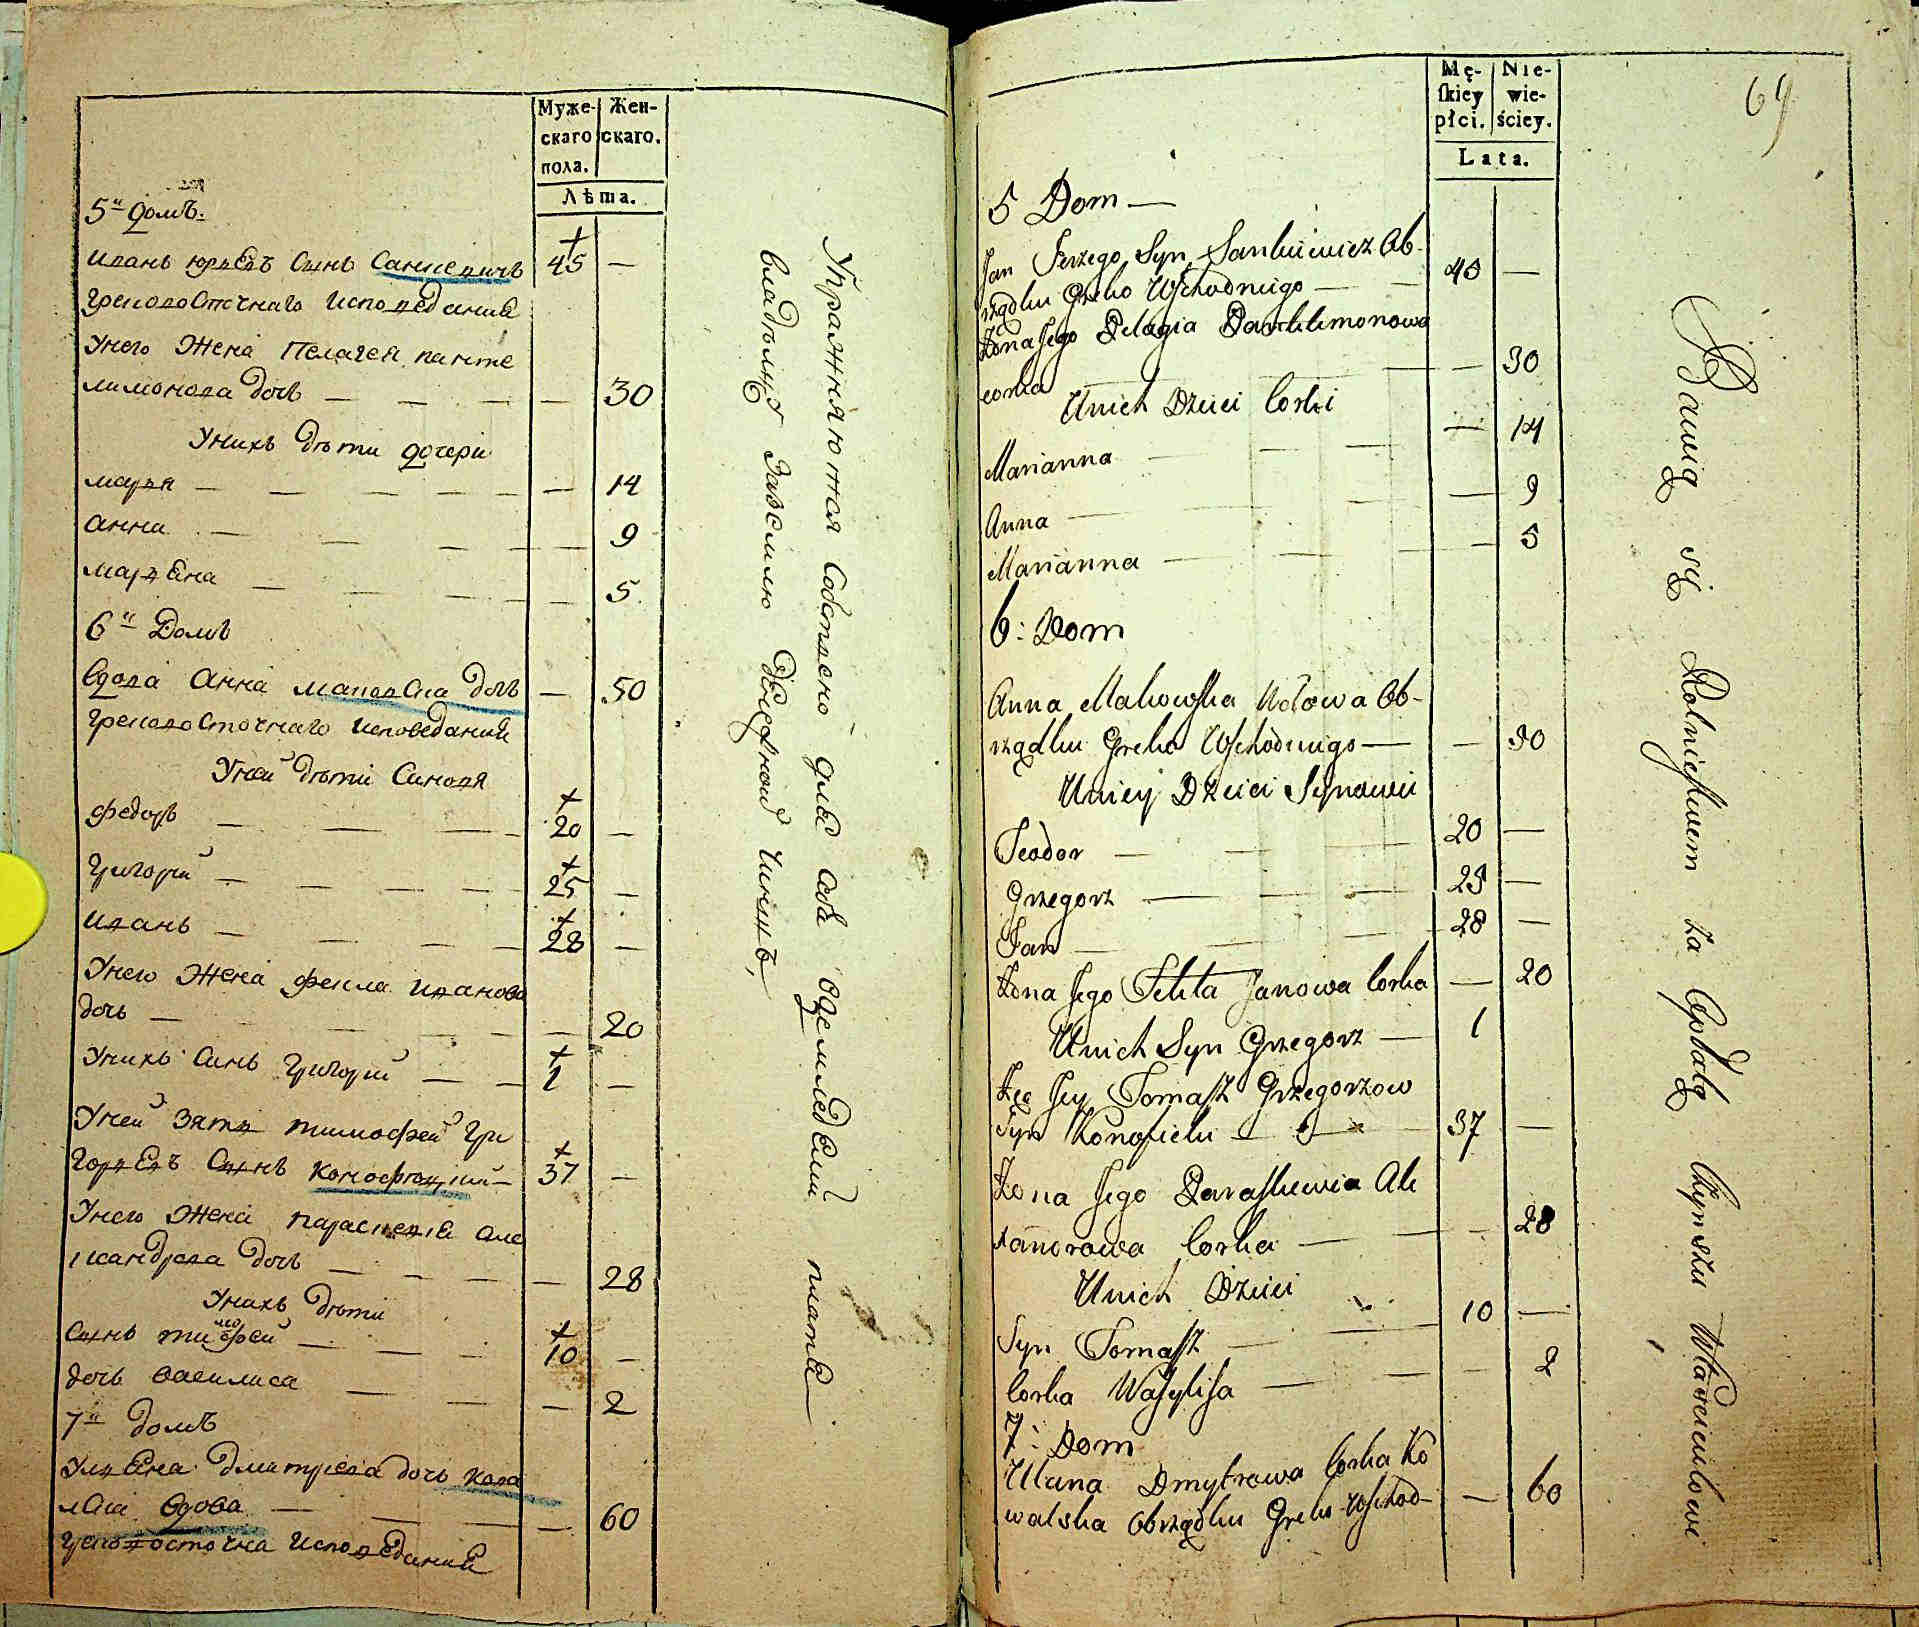 Муже-
скаго
пола.
Жен-
скаго.
Лѣта.
5й домъ.
иванъ юрьевъ Синъ Санкевичъ 45 —
грековосточнаго исповедания
Унего жена Пелагея панте
лимонова дочь — — — — 30
Унихъ дѣти дочери
марья — — — — — 14
анна — — — — — 9
марьена — — — — — 5
6й Домъ
вдова Анна маковска дочь — 50
грековосточнаго исповедания
Уней дѣти Синовя
федоръ — — — 20 —
григорий — — — — 25 —
иванъ — — — — 28 —
Унего жена фекла иванова
дочь — — — — 20
Унихъ Синъ григорий — — 1 —
Уней зять тимофей гри
горьевъ Сынъ 37 —
Унего жена параскевия але
ксандрова дочь — — — — 28
Унихъ дѣти
Сынъ тимофей — — — 10 —
дочь василиса — — — 2
7й домъ
ульена дмитрева дочь кова
лска вдова — — — — 60
грековосточна исповедания
Упражняются собствено для себя земледелием платя
владельцу за землю денежной чиншъ,
69
Mę-
skiey
płci.
Nie-
wie-
ściey.
Lata.
5 Dom —
Jan Jerzego Syn Sankiewicz Ob-
rządku Greko Wschodniego — — 45 —
Żona Jego Pelagia Pantelimonowa
corka — — 30
Unich Dzieci Corki
Marianna — — — 14
Anna — — — 9
Marianna — — — — 5
6: Dom
Anna Makowska Wdowa Ob-
rządku Greko Wschodniego — — 50
Uniey Dzieci Synowie
Teodor — — — 20 —
Grzegorz — — — 25 —
Jan — — — 28 —
Żona Jego Tekla Janowa Corka — 20
Unich Syn Grzegorz — 1
Zięć Jey Tomasz Grzegorzow
Syn — — 37 —
Żona Jego Paraskiewia Ale
xandrowa Corka — — — 28
Unich Dzieci
Syn Tomasz — — 10 —
Corka Wasylisa — — — 2
7: Dom
Ulana Dmytrowa Corka Ko
walska Obrządku Greko Wschod- — 60
Bawią się Rolnictwem za Opłatą Czynszu Właścicielowi